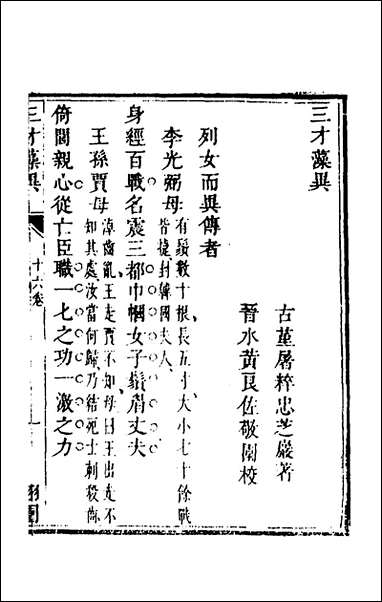 三才藻異
古堇屠粹忠芝巖著
晉水黃艮佐敬園校
列女而異傳者
李光弼母有鬚數十根長五寸大小七十餘戰皆捷封韓國夫人
身經百戰名震三都巾幗女子鬚眉丈夫
王孫賈母淖齒亂王走賈不知母曰王出走不知其處汝當何歸乃結死士刺殺齒
倚閭親心從亡臣職一七之功一激之力
三才藻異
十六卷